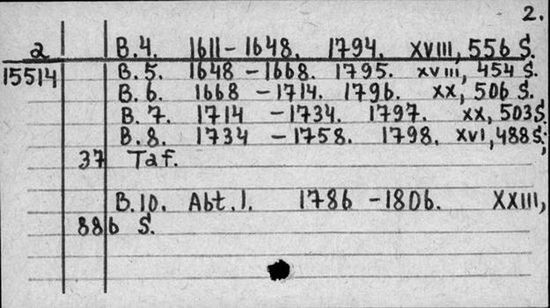 2.
2 B.4. 1611-1648. 1794. XVIII, 556 S.
15514 B.5. 1648-1668. 1795. XVIII, 454 S.
B.6. 1668-1714. 1796. XX, 506 S.
B.7. 1714-1734. 1797. XX, 503 S.
B.8. 1734-1758. 1798. XVI, 488 S.;
37 Taf.
B.10. Abt.1. 1786-1806. XXIII,
886 S.